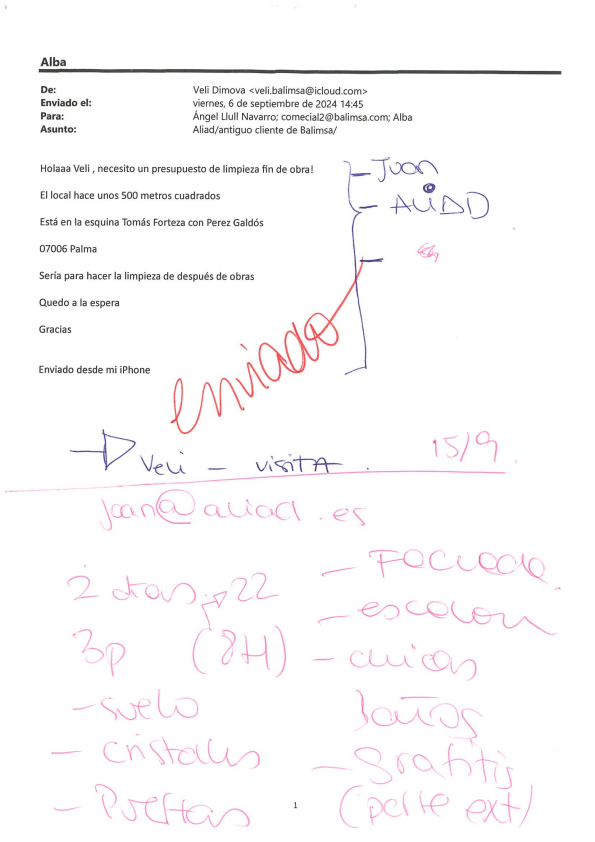 Alba
De: Veli Dimova <veli.balimsa@icloud.com>
Enviado el: viernes, 6 de septiembre de 2024 14:45
Para: Ángel Llull Navarro; comecial2@balimsa.com; Alba
Asunto: Aliad/antiguo cliente de Balimsa/
Holaaa Veli , necesito un presupuesto de limpieza fin de obra!
El local hace unos 500 metros cuadrados
Está en la esquina Tomás Forteza con Perez Galdós
07006 Palma
Sería para hacer la limpieza de después de obras
Quedo a la espera
Gracias
Enviado desde mi iPhone
- Juan
- ALiDD
enviado
Veli - visitA.
15/9
joan@aliad.es
2 dias 22
3p (8H)
- suelo
- cristales
- Puertas
- Fachada
- escalon
- chicas
baños
- grafitis
(parte ext)
1